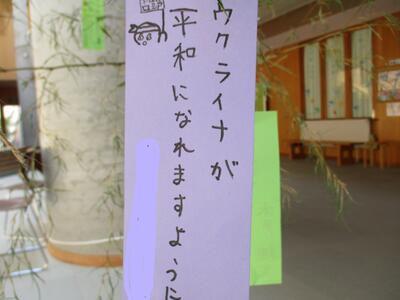 ウクライナが
平和になれますように